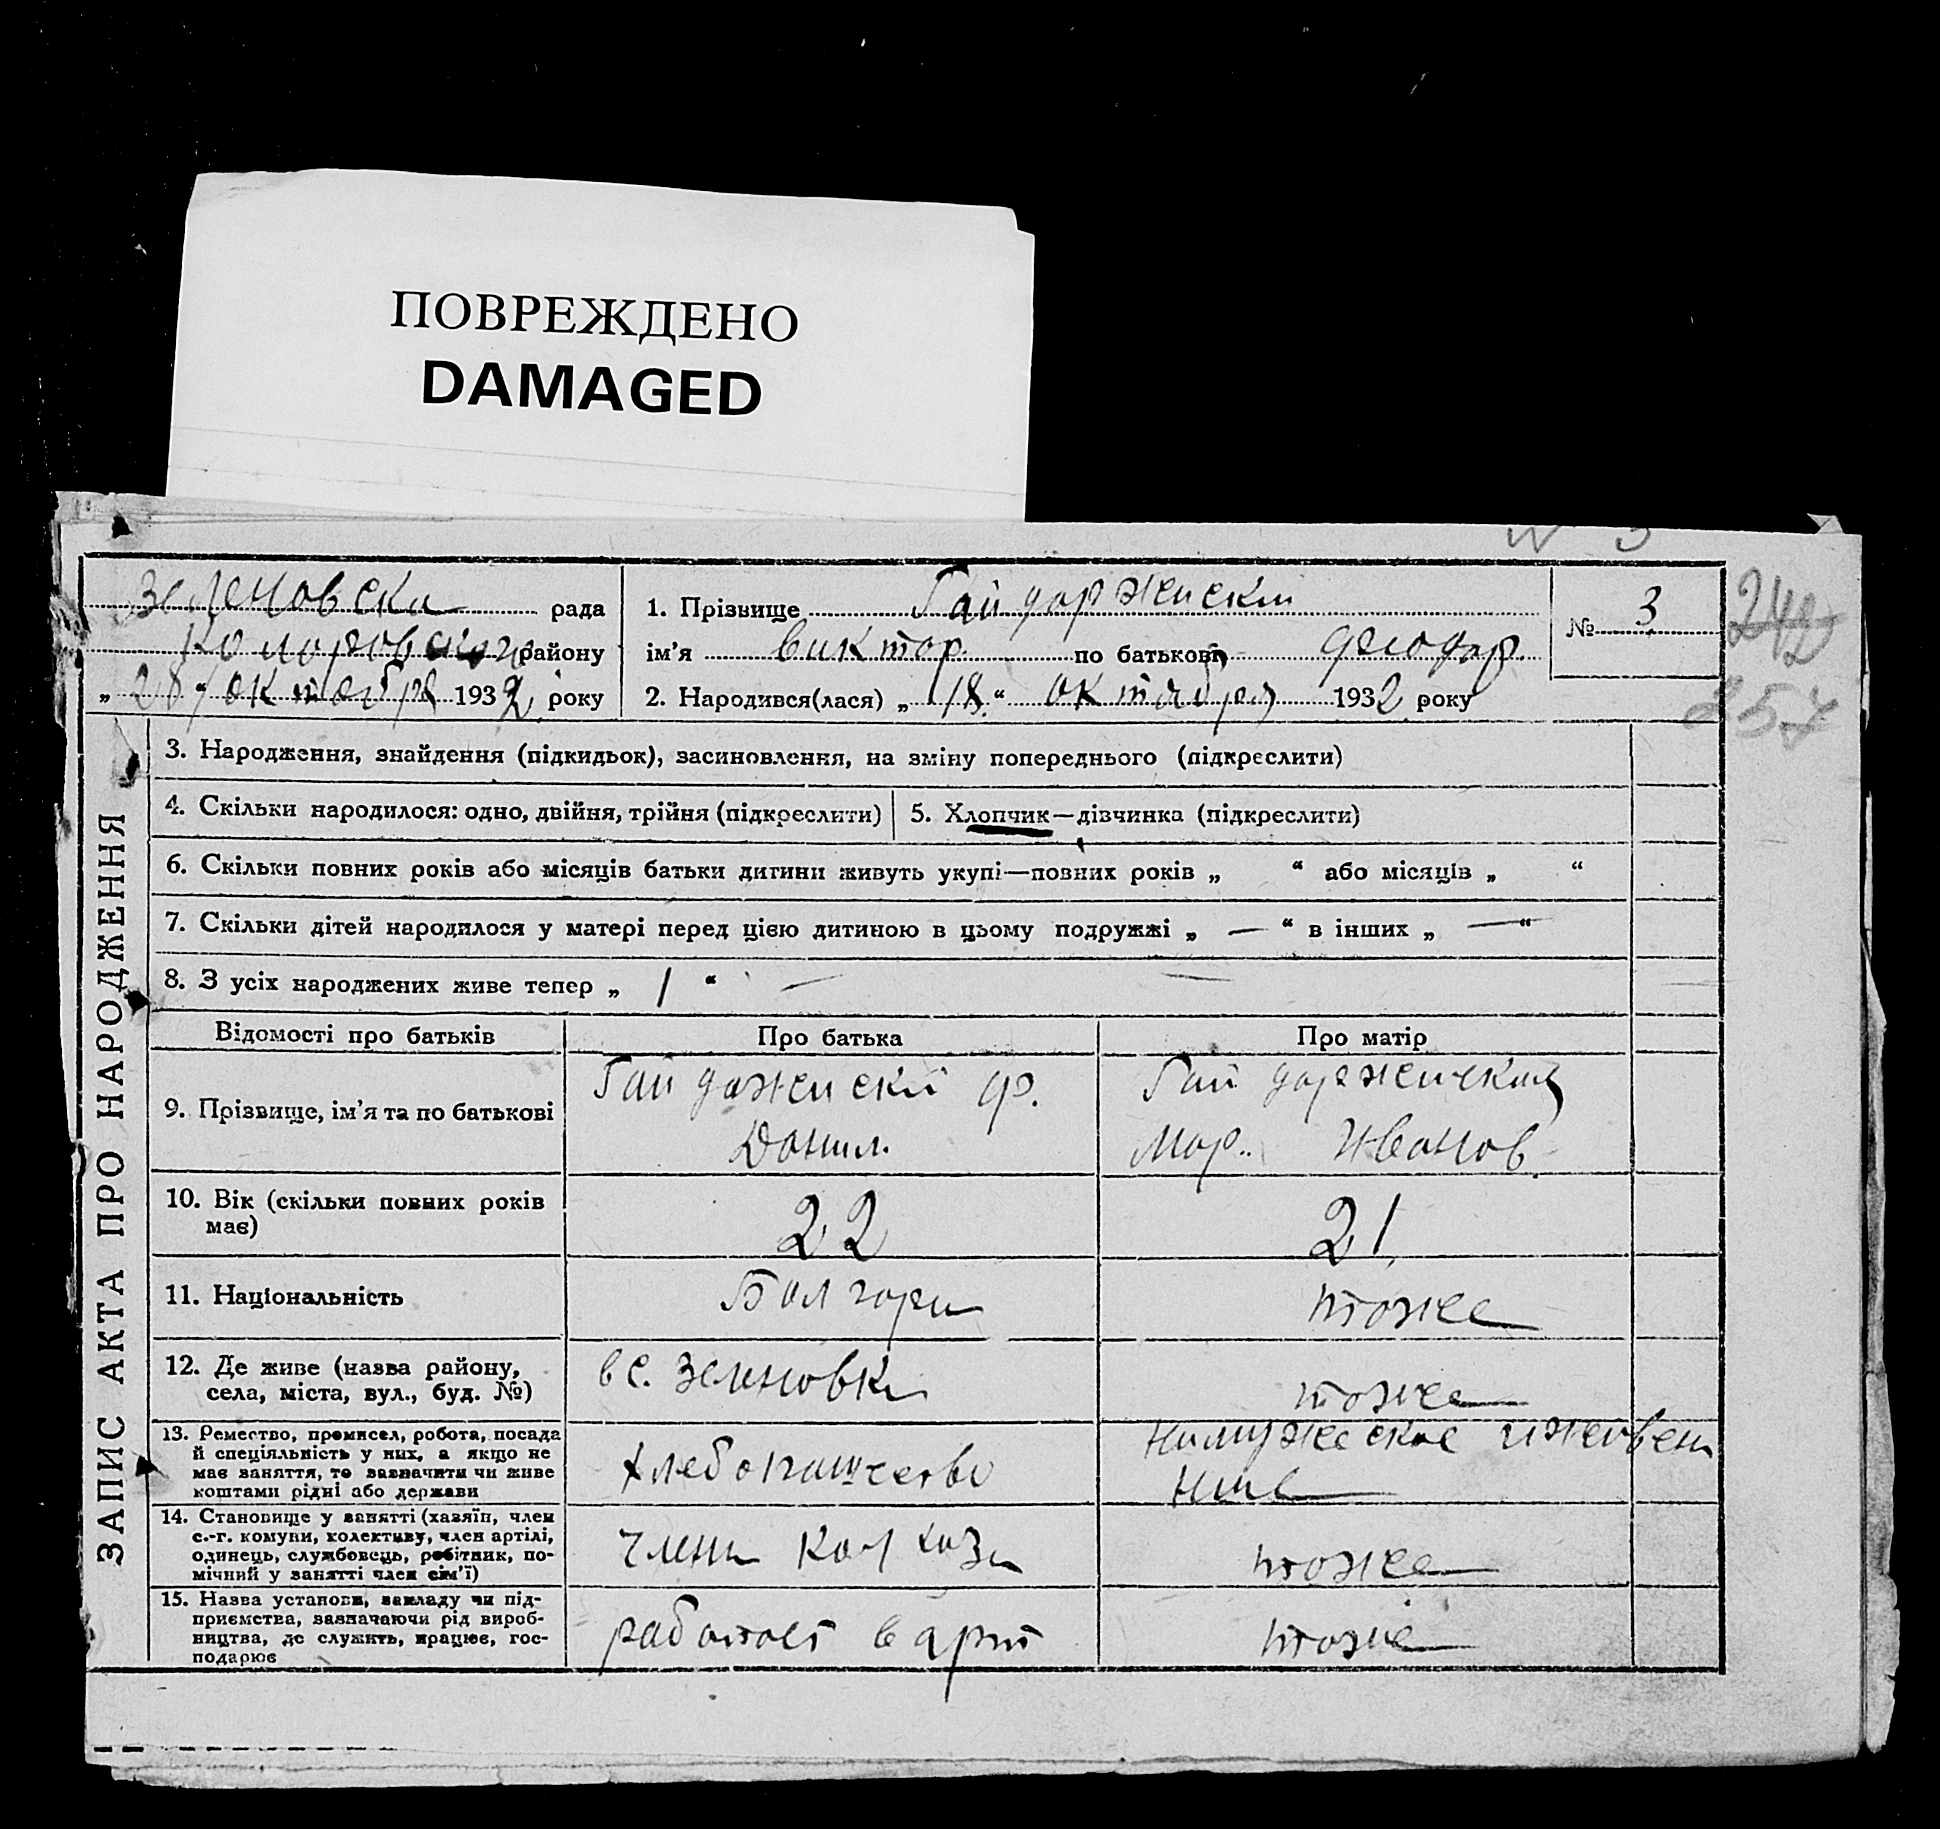 ПОВРЕЖДЕНО
DAMAGED
N 3
Зеленовска рада
району
„ 28 “ октября 1932 року
1. Прізвище Гайдаржийский
ім’я Виктор по батькові Феодор.
2. Народився(лася) „ 18 “ октября 1932 року
№ 3
242
257
ЗАПИС АКТА ПРО НАРОДЖЕННЯ
3. Народження, знайдення (підкидьок), засиновлення, на зміну попереднього (підкреслити)
4. Скільки народилося: одно, двійня, трійня (підкреслити)
5. Хлопчик—дівчинка (підкреслити)
6. Скільки повних років або місяців батьки дитини живуть укупі—повних років „ “ або місяців „ “
7. Скільки дітей народилося у матері перед цією дитиною в цьому подружжі „ — “ в інших „ — “
8. З усіх народжених живе тепер „ 1 “ —
Відомості про батьків Про батька Про матір
9. Прізвище, ім’я та по батькові
Ф.
Данил.
Мар. Иванов.
10. Вік (скільки повних років
має)
22
21
11. Національність
Болгары
тоже
12. Де живе (назва району,
села, міста, вул., буд. №)
в с. Зеленовки
тоже
13. Ремество, промисел, робота, посада
й спеціяльність у них, а якщо не
має заняття, то зазначити чи живе
коштами рідні або держави
хлебопашество
на мужеское иждивен
ние
14. Становище у занятті (хазяїн, член
с.-г. комуни, колективу, член артілі,
одинець, службовець, робітник, по-
мічний у занятті член сім’ї)
члены колхоза
тоже
15. Назва установи, закладу чи під-
приємства, зазначаючи рід вироб-
ництва, де служить, працює, гос-
подарює
работает в арт
тоже